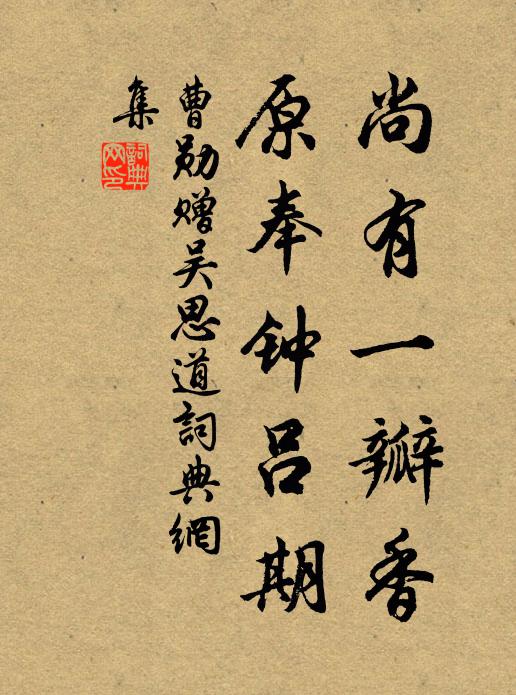 尚有一瓣香
原奉钟吕期
曹勋赠吴思道詞典網
集
詞典网印